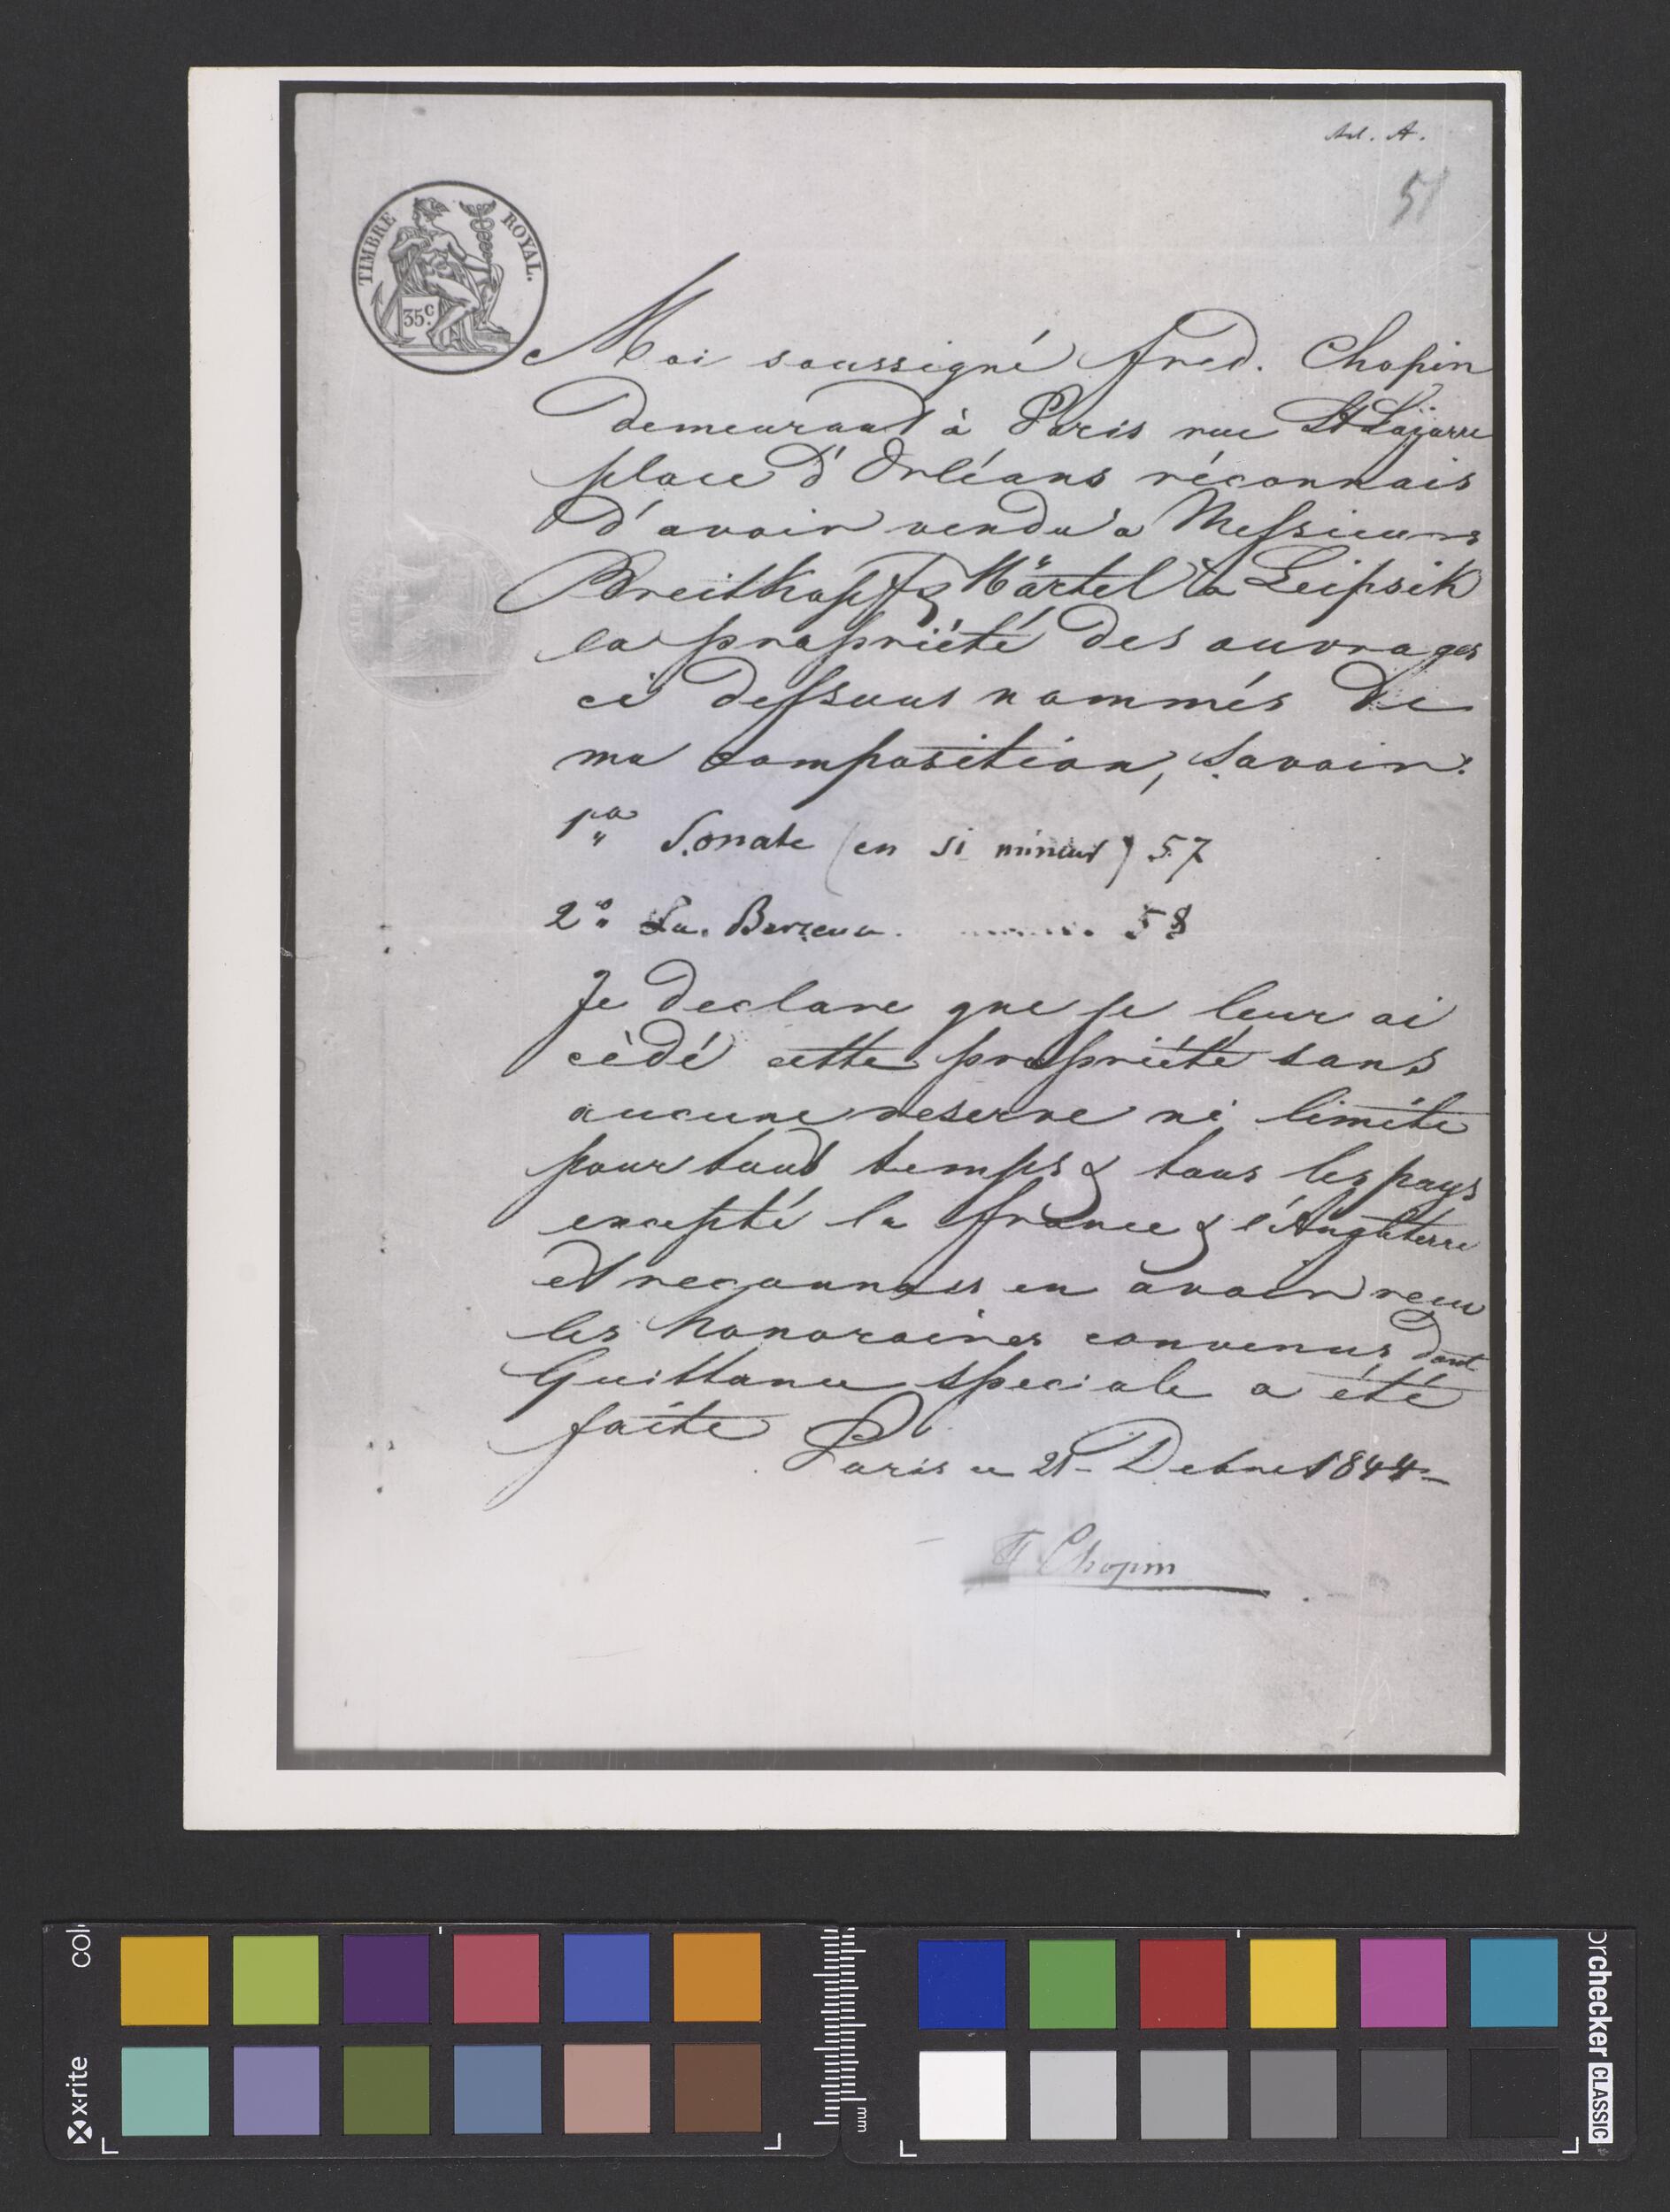 A.
51
TIMBRE ROYAL.
35c.
Moi soussigné Fred. Chopin
demeurant à Paris rue St Lazarre
place d'Orléans réconnais
d'avoir vendu a Messieurs
Breitkopf & Härtel a Leipsik
la propriété des ouvrages
ci dessous nommés de
ma composition, savoir:
1o Sonate (en si mineur) 57
2o La Berceuse ........ 58
Je declare que je leur ai
cèdé cette propriété sans
aucune reserve ni limite
pour tout temps & tous les pays
excepté la France & l'Angleterre
et reconnais en avoir recu
les honoraires convenus dont
Quittance speciale a été
faite
Paris ce 21 - Debre 1844 -
F Chopin
x-rite
col
mm
orchecker CLASSIC